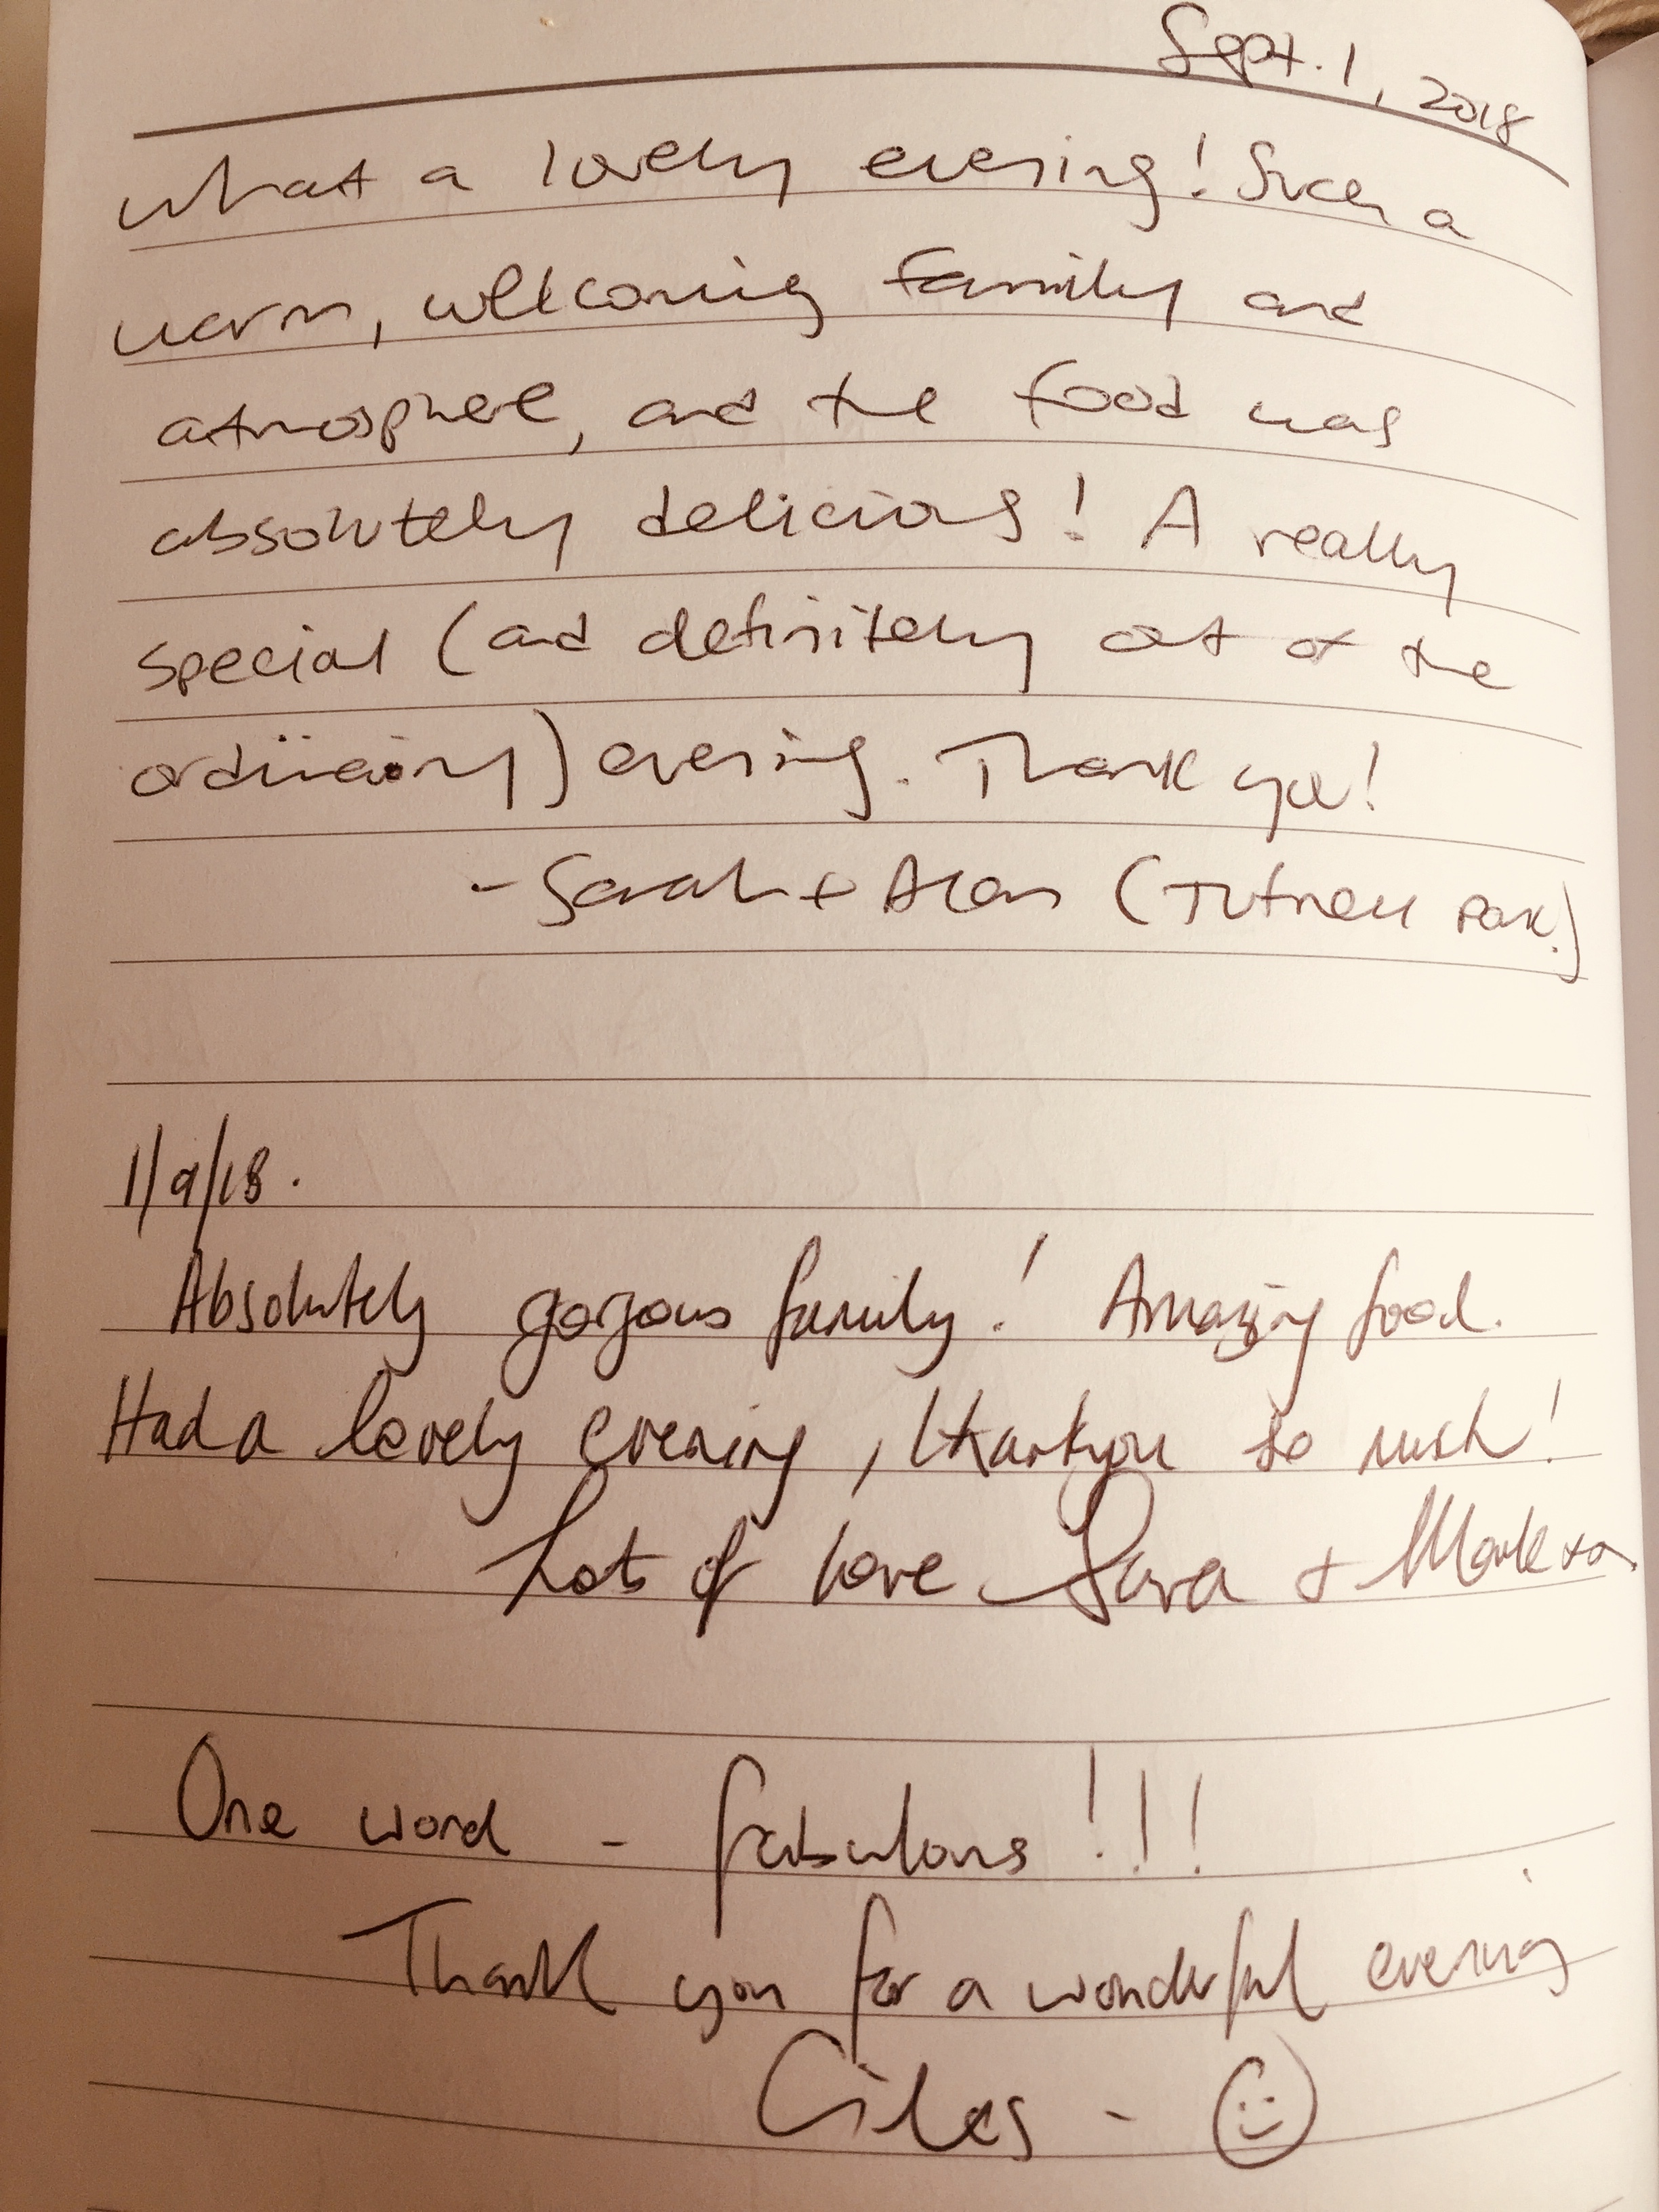 Sept. 1, 2018
What a lovely evening! Such a
warm, welcoming family and
atmosphere, and the food was
absolutely delicious! A really
special (and definitely out of the
ordinary) evening. Thank you!
- Sarah + Alan (Tufnell Park.)
1/9/18.
Absolutely gorgous family! Amazing food.
Had a lovely evening, thankyou so much!
Lots of love Sara + Mark xx
One word - fabulous!!!
Thank you for a wonderful evening
Giles - ☺